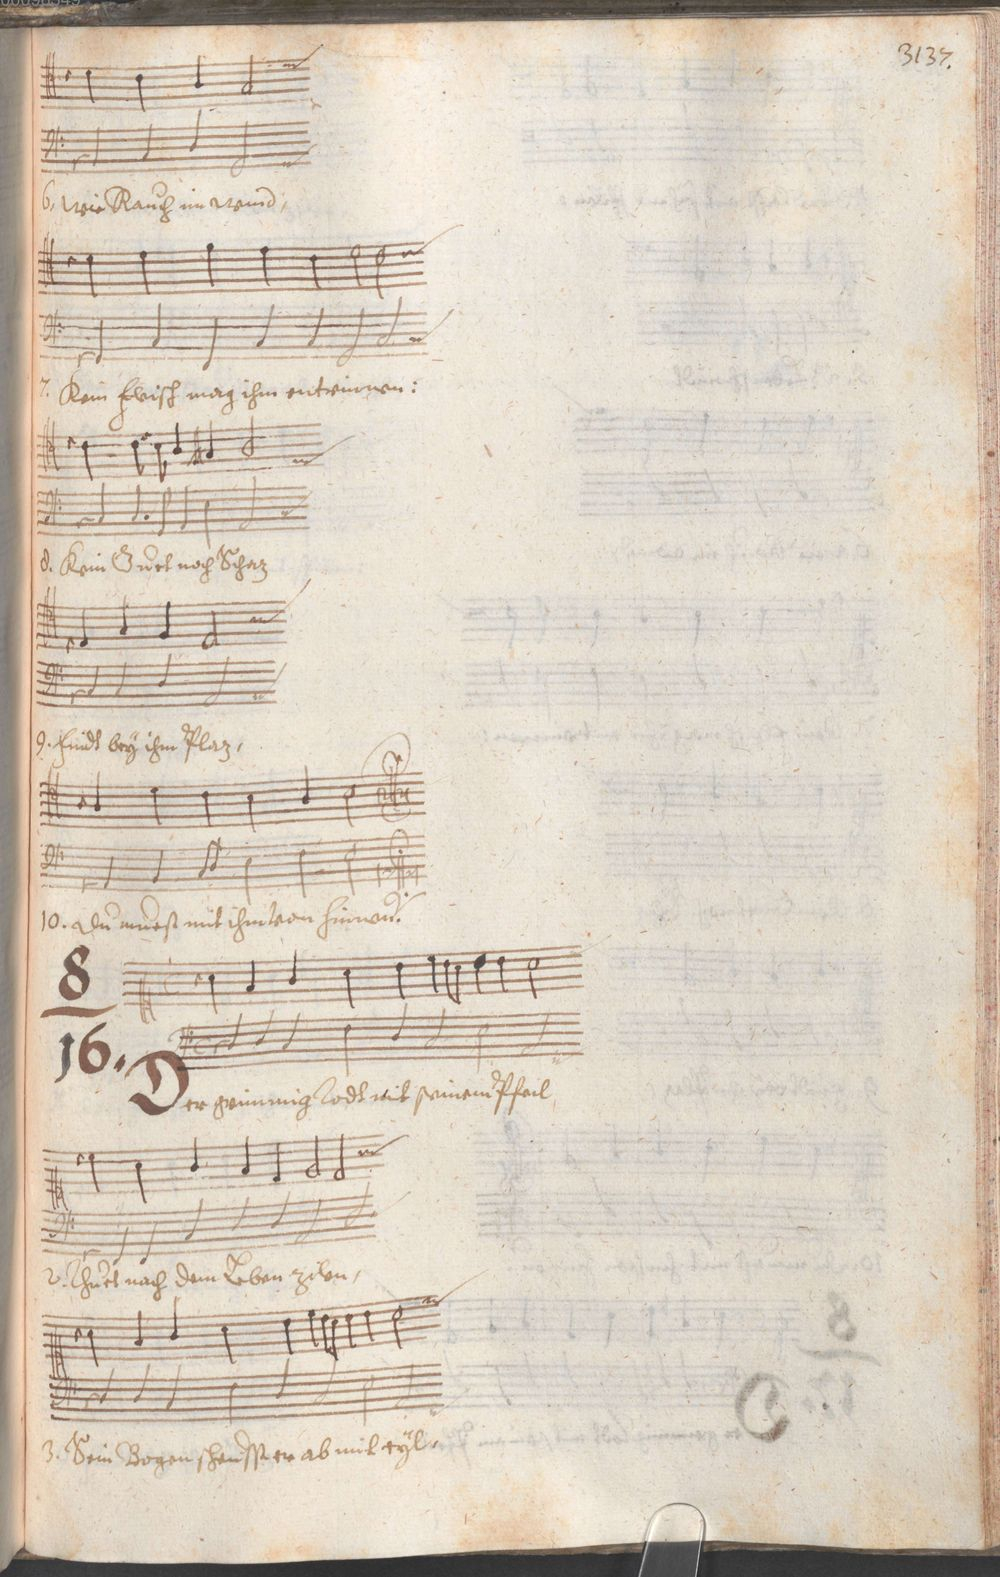 3137.
6. wie Rauch im wind,
7. Kein Fleisch mag ihm entrinnen:
8. Kein Guet noch Schaz
9. Findt bey ihm Plaz,
10. Du muest mit ihm von hinnen.
8
16. Der grimmig Todt mit seinem Pfeil,
2. Thuet nach dem Leben zilen,
3. Sein Bogen scheusst er ab mit eyl,